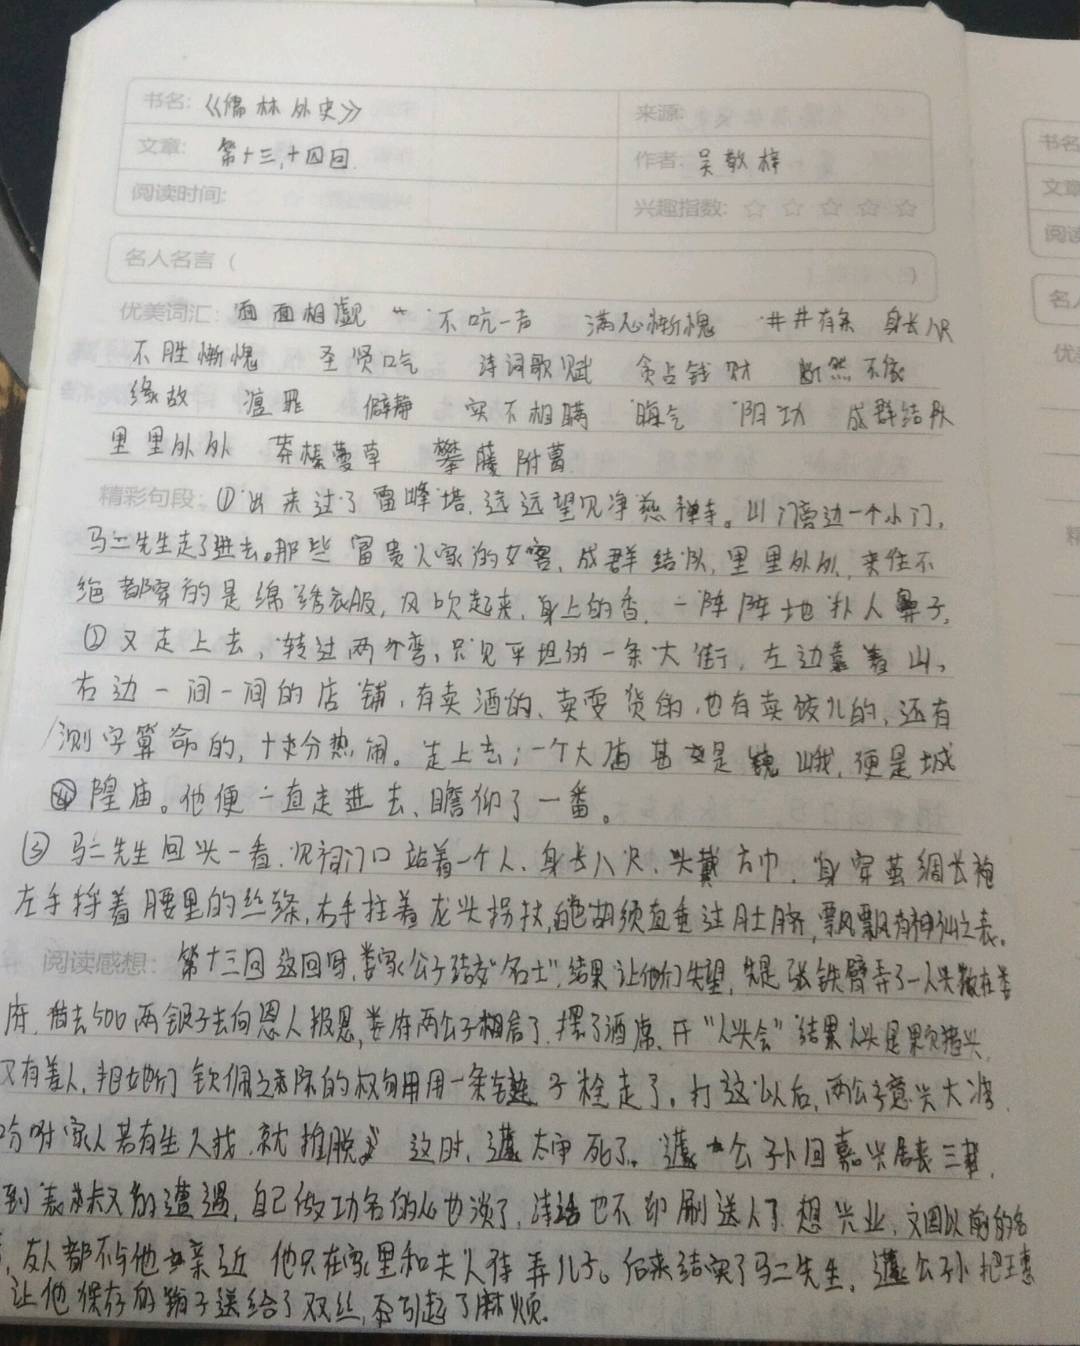 书名:《儒林外史》 来源:
文章: 第十三,十四回. 作者: 吴敬梓
阅读时间: 兴趣指数: ☆ ☆ ☆ ☆ ☆
名人名言 ( )
优美词汇: 面面相觑 不吭一声 满心惭愧 井井有条 身长八尺
不胜惭愧 圣贤口气 诗词歌赋 贪占钱财 断然不依
缘故 僻静 实不相瞒 晦气 阴功 成群结队
里里外外 荠榛蔓草 攀藤附葛
精彩句段: ①出来过了雷峰塔,远远望见净慈禅寺。山门旁边一个小门,
马二先生走了进去。那些富贵人家的女客,成群结队,里里外外,来往不
绝都穿的是绵绣衣服,风吹起来,身上的香,一阵阵地扑人鼻子,
②又走上去,转过两个弯,只见平坦的一条大街,左边靠着山,
右边一间一间的店铺,有卖酒的、卖耍货的,也有卖饺儿的,还有
测字算命的,十分热闹。走上去,一个大庙甚是巍峨,便是城
隍庙。他便一直走进去、瞻仰了一番。
③马二先生回头一看,见祠门口站着一个人,身长八尺,头戴方巾,身穿茧绸长袍
左手捋着腰里的丝绦,右手拄着龙头拐杖,白胡须直垂过肚脐,飘飘有神仙之表。
阅读感想: 第十三回这回呀,娄家公子结交"名士",结果让他们失望,先是张铁臂弄了一人头散在娄
府,借去500两银子去向恩人报恩,娄府两公子相信了,摆了酒席,开"人头会"结果人头是颗猪头,
又有差人,把他们钦佩之 的权勿用用一条链子栓走了。打这以后,两公子意兴大
吩咐家人若有生人找,就推脱 这时,蘧太守死了。蘧公孙回嘉兴居丧三载,
到表叔又的遭遇,自己做功名的心也淡了,诗话也不印刷送人了,想 业,文因以前的名
友人都不与他亲近 他只在家里和夫人侍弄儿子。后来结实了马二先生,蘧公孙把王惠
让他保存的箱子送给了双丝,不引起了麻烦.
书名
文章
阅读
名人
优
精